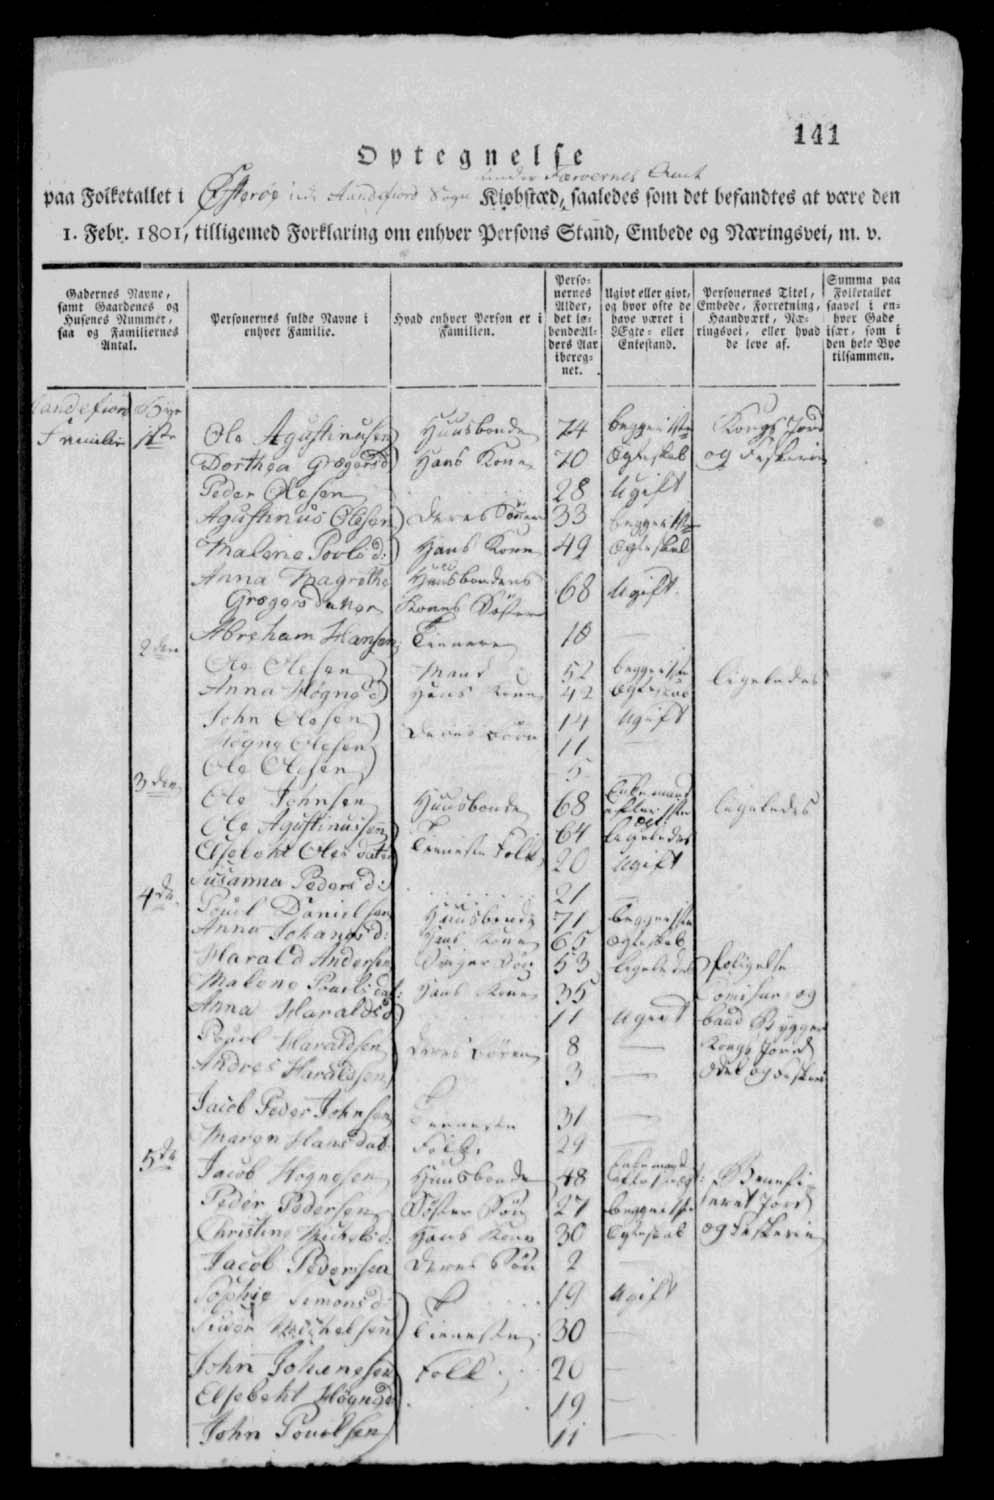 141
Optegnelse
under Færøernes Amt
paa Folketallet i Østerøe Sogn Kiøbstæd, saaledes som det befandtes at være den
1. Febr. 1801, tilligemed Forklaring om enhver Persons Stand, Embede og Næringsvei, m. v.
Gadernes Navne, samt Gaardenes og Husenes Nummer, saa og Familiernes Antal.
Personernes fulde Navne i enhver Familie.
Hvad enhver Person er i Familien.
Personernes Alder, det løbende Alders Aar iberegnet.
Ugivt eller givt, og hvor ofte de have været i Ægte- eller Enkestand.
Personernes Titel, Embede, Forretning, Haandværk, Næringsvei, eller hvad de leve af.
Summa paa Folketallet saavel i enhver Gade især, som i den hele Bye tilsammen.
Familie 1ste Ole Agustinusen Huusbonde 74 begge i 1ste Kongs Jord
Dorthea Gregersd Hans Kone 70 Ægteskab og Fiskerie
Peder Olesen 28 Ugift
Agustinus Olesen Deres Sønner 33 begge i 1ste
Malene Povlsd: Hans Kone 49 Ægteskab
Anna Magrethe Huusbondens
Gregersdatter Kones Søster 68 Ugift
Abraham Hansen Tienere 18 —
2den Ole Olesen Mand 52 begge i 1ste ligeledes
Anna Høgned Hans Kone 42 Ægteskab
John Olesen 14 Ugift
Høgne Olesen Deres Børn 11 —
Ole Olesen 5
3den Ole Johnsen Huusbonde 68 Enkemand efter 1ste ligeledes
Ole Agustinussen 64 ligeledes
Elsebeht Oles datter Tieneste Folk 20 Ugift
Susanna Pedersd: 21 —
4de Pouel Danielsen Huusbonde 71 begge i 1ste
Anna Johanesd: Hans Kone 65 Ægteskab
Harald Andersen Sviger Søn 53 ligeledes
Malene Pouelsdat: Hans Kone 35
Anna Haraldsd 11 Ugivt
Pouel Haraldsen Deres Børn 8 — Kongs Jord
Andres Haraldsen 3 — Odel og Fiskerie
Jacob Peder Johnsen Tieneste 31 —
Maren Hansdat: Folk 29 —
5te Jacob Høgnesen Huusbonde 48 Enkemand
Peder Pedersen Søster Søn 27 begge i 1ste
Christine Michelsd: Hans Kone 30 Ægteskab og Fiskerie
Jacob Pedersen Deres Søn 2 —
Sophie Simonsd: 19 Ugift
Michelsen Tieneste 30 —
John Johanesen Folk 20 —
Elsebeht Høgnesd 19 —
John Pouelsen 11 —